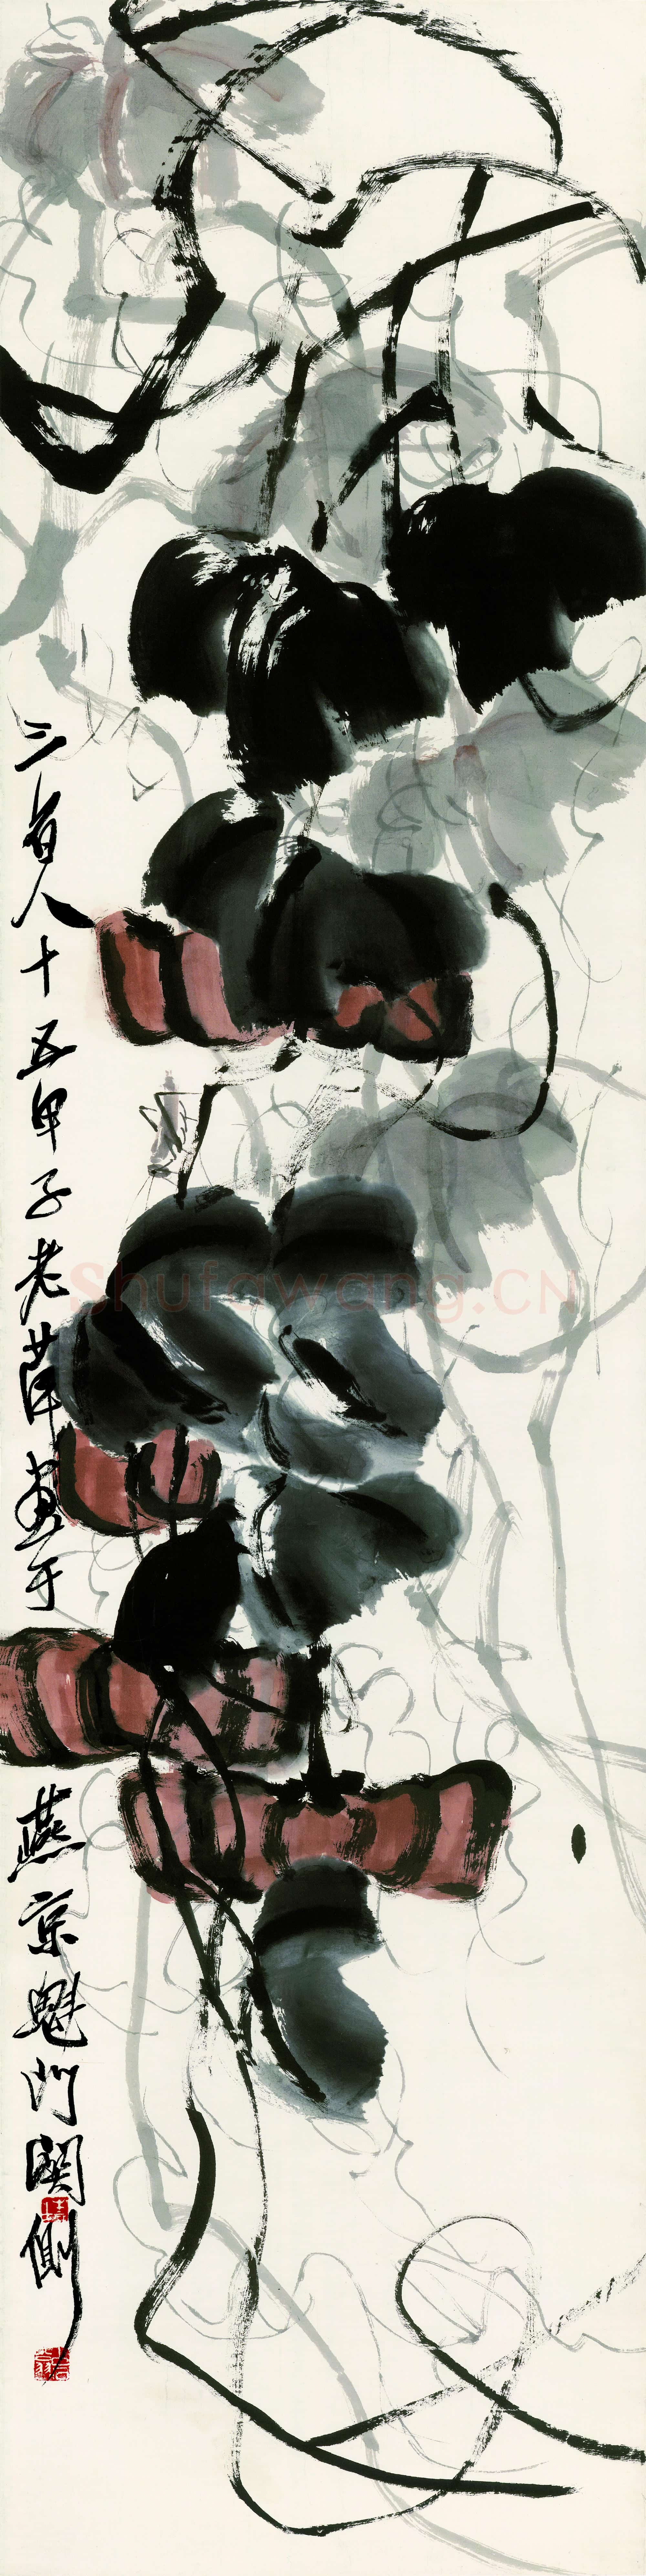 三百八十五甲子老萍畫于燕京魁門關側
Shufawang.CN